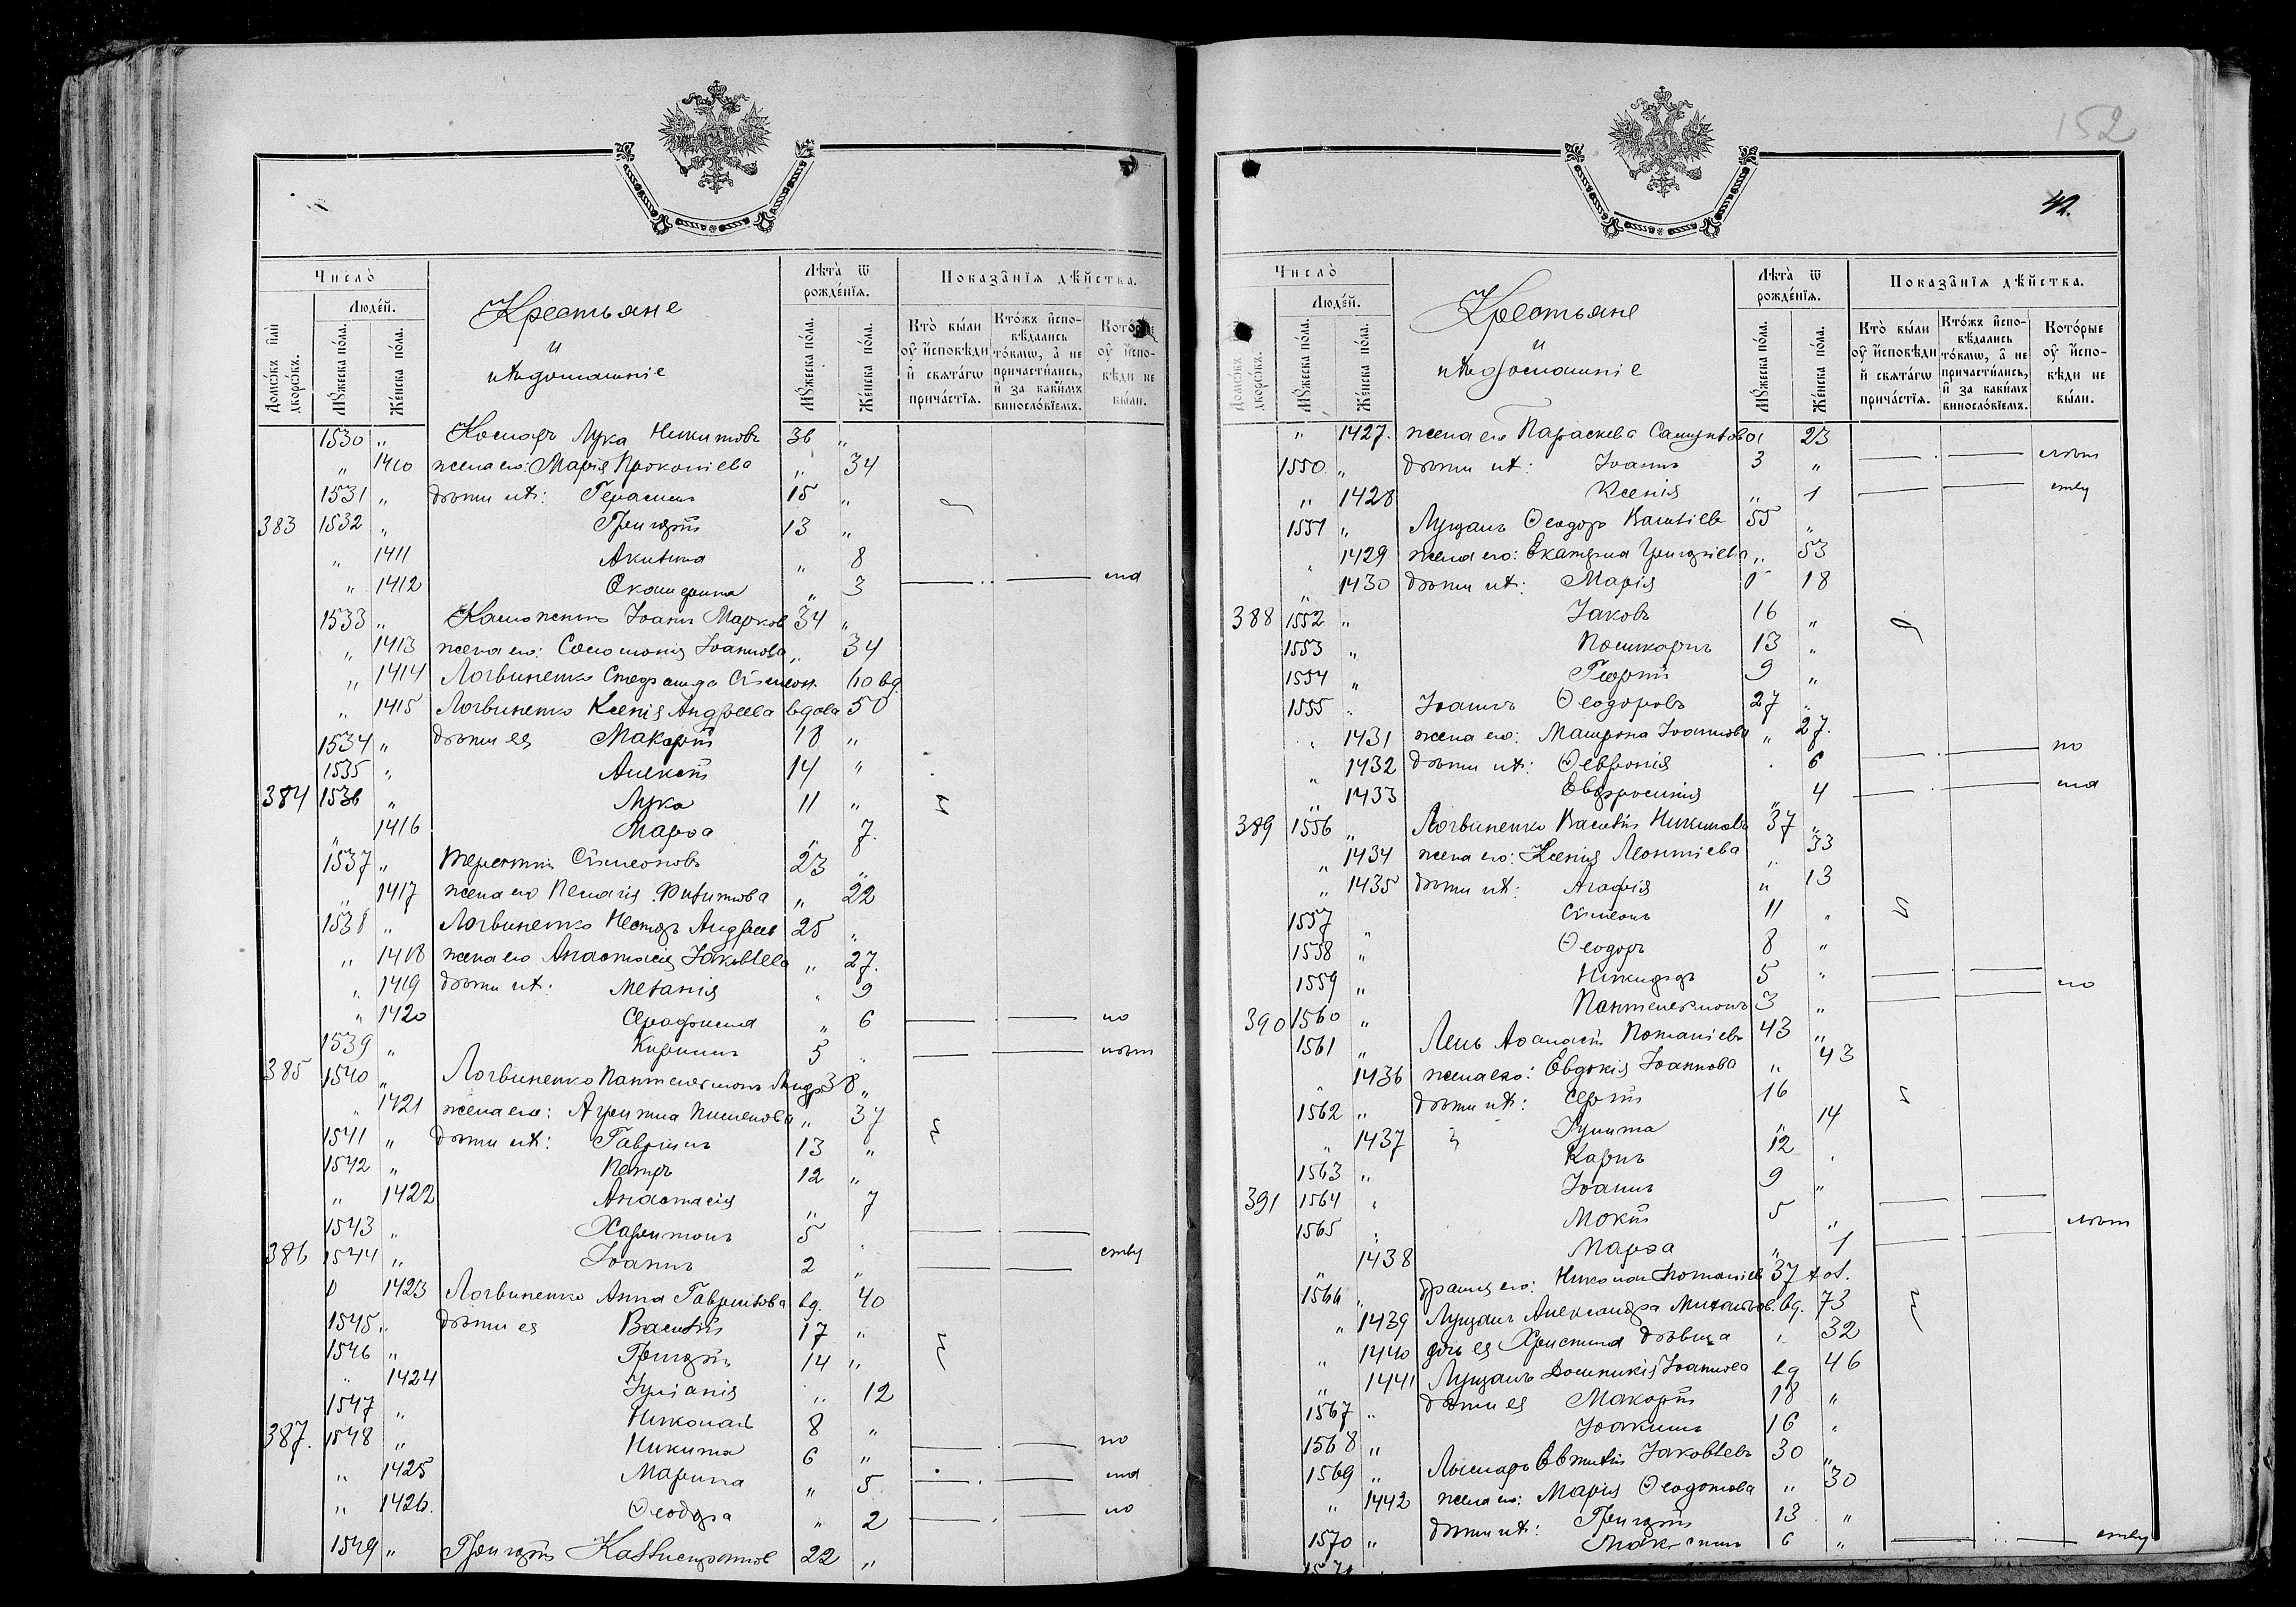 Число̀
Людей.
Домо́въ и҆лѝ дворо́въ.
Мꙋжеска по́ла.
Же́нска по́ла.
Крестьяне
и
ихъ домашніе
Лѣта̀ ѿ рожде́нїѧ.
Мꙋжеска по́ла.
Же́нска по́ла.
Показа̑нїѧ дѣ́йства.
Кто̀ бы́ли оу҆ и҆сповѣди и҆ свѧта́гѡ прича́стїѧ.
Кто́жъ и҆спо-вѣдались то́кмѡ, а҆ не причасти́лись, и҆ за каки́мъ винословїемъ.
Кото́рые оу҆ и҆спо-вѣди не бы́ли.
1530 „ Лука Никитовъ 36 „
„ 1410 жена его: Марія Прокопіева „ 34
1531 „ дѣти ихъ: Герасимъ 15 „
383 1532 „ Григорій 13 „
„ 1411 Акилина „ 8
„ 1412 Екатерина „ 3
1533 „ Іоаннъ Марков 34 „
„ 1413 жена его: Соломонія Іоаннова „ 34
„ 1414 Логвиненко Стефанида Сѵмеон. 60 вд.
„ 1415 Логвиненко Ксенія Андреева вдова 50
1534 „ дѣти ея Макарій 18 „
1535 „ Алексій 14 „
384 1536 „ Лука 11 „
„ 1416 Марѳа „ 7
1537 „ Терентій Сѵмеоновъ 23 „
„ 1417 жена его Пелагія Филиппова „ 22
1538 „ Логвиненко Несторъ Андреев 25 „
„ 1418 жена его Анастасія Іаковлева „ 27.
„ 1419 дѣти ихъ: Меланія „ 9
„ 1420 Серафима „ 6
1539 „ Кириллъ 5 „
385 1540 „ Логвиненко Пантелеимонъ Андр. 38 „
„ 1421 жена его: Агрипина „ 37
1541 „ дѣти ихъ: Гавріилъ 13 „
1542 „ Петръ 12 „
„ 1422 Анастасія „ 7
1543 „ Харитонъ 5 „
386 1544 „ Іоаннъ 2 „
1423 Логвиненко Анна Гавриилова вд. 40
1545 „ дѣти ея Василій 17 „
1546 „ Григорій 14 „
„ 1424 Іуліанія „ 12
1547 „ Николай 8 „
387. 1548 „ Никита 6 „
„ 1425 Марина „ 5
„ 1426. Ѳеодора „ 2
1549 „ Григорій Каллистратов 22 „
152
42.
Число̀
Людей.
Домо́въ
дворо́въ.
Мꙋжеска по́ла.
Же́нска по́ла.
Крестьяне
и
ихъ домашніе
Лѣта̀ ѿ рожде́нїѧ.
Мꙋжеска по́ла.
Же́нска по́ла.
Показа̑нїѧ дѣ́йства.
Кто̀ бы́ли оу҆ и҆сповѣди и҆ свѧта́гѡ прича́стїѧ.
Кто́жъ и҆спо-вѣдались то́кмѡ, а҆ не причасти́лись, и҆ за каки́мъ винословїемъ.
Кото́рые оу҆ и҆спо-вѣди не бы́ли.
„ 1427. жена его Параскева Самуилова 23
1550 „ дѣти ихъ: Іоаннъ 3 „
„ 1428 Ксенія „ 1
1551 „ Лущанъ Ѳеодоръ Василіев 55 „
„ 1429 жена его: Екатерина Григоріева „ 53
„ 1430 дѣти ихъ: Марія 18
388 1552 „ Іаковъ 16 „
1553 „ Поликарпъ 13 „
1554 „ Георгій 9 „
1555 „ Іоаннъ Ѳеодоровъ 27 „
„ 1431 жена его: Матрона Іоаннова „ 27.
„ 1432 дѣти ихъ: Ѳевронія 6
„ 1433 Евфросинія „ 4
389 1556 „ Логвиненко Василій Никитовъ 37 „
„ 1434 жена его: Ксенія Леонтіева „ 33
„ 1435 дѣти ихъ: Агафія „ 13
1557 „ Сѵмеонъ 11 „
1558 „ Ѳеодоръ 8 „
1559 „ Никифоръ 5 „
390 1560 „ Пантелеимонъ 3 „
1561 „ Лень Аѳанасій Потапіевъ 43 „
1436 жена его: Евдокія Іоаннова „ 43
1562 „ дѣти ихъ: Сергій 16
„ 1437 Іулитта „ 14
1563 „ Карпъ 12
391 1564 „ Іоаннъ 9 „
1565 Мокій 5 „
„ 1438 Марѳа „ 1
1566 „ братъ его: Николай Потапіев 37 хол.
„ 1439 Лущанъ Александра Михайлов. вд. 73
„ 1440 дочь ея Христина дѣвица „ 32
„ 1441 Лущанъ Домникія Іоаннова вд 46
1567 „ дѣти ея Макарій 18 „
1568 „ Іоакимъ 16 „
1569 „ Евтихій Іаковлевъ 30 „
„ 1442 жена его: Марія Ѳеодотова „ 30
1570 „ дѣти ихъ: Григорій 13 „
1571 Максимъ 6 „